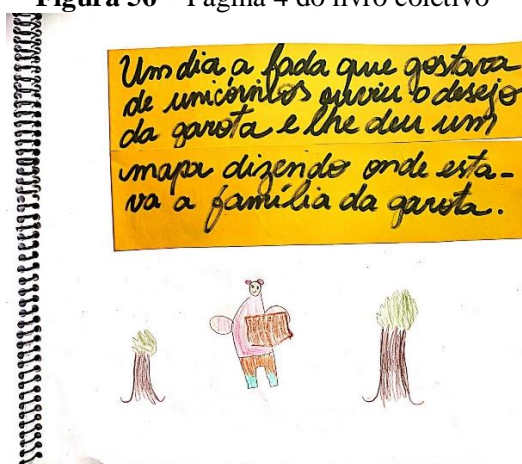 Figura 56 – Página 4 do livro coletivo
Um dia a fada que gostava
de unicórnios ouviu o desejo
da garota e lhe deu um
mapa dizendo onde esta-
va a família da garota.